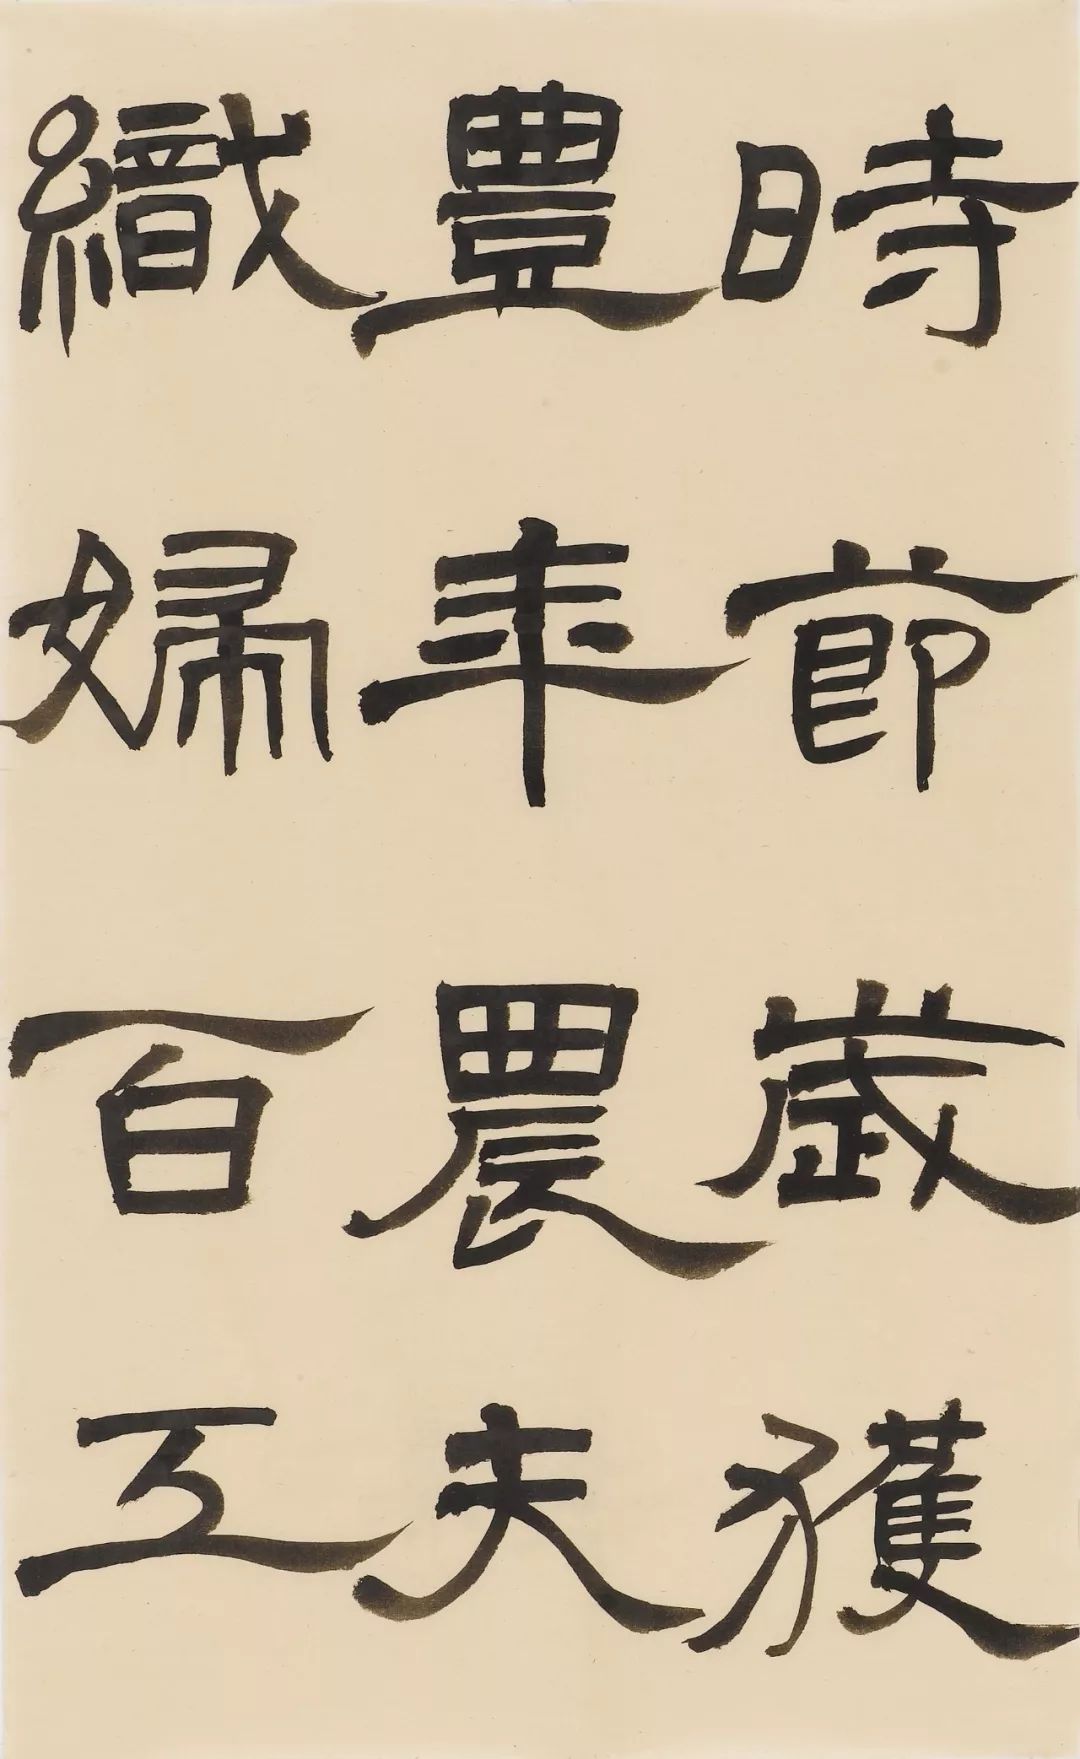 時節歲獲
豐年農夫
織婦百工